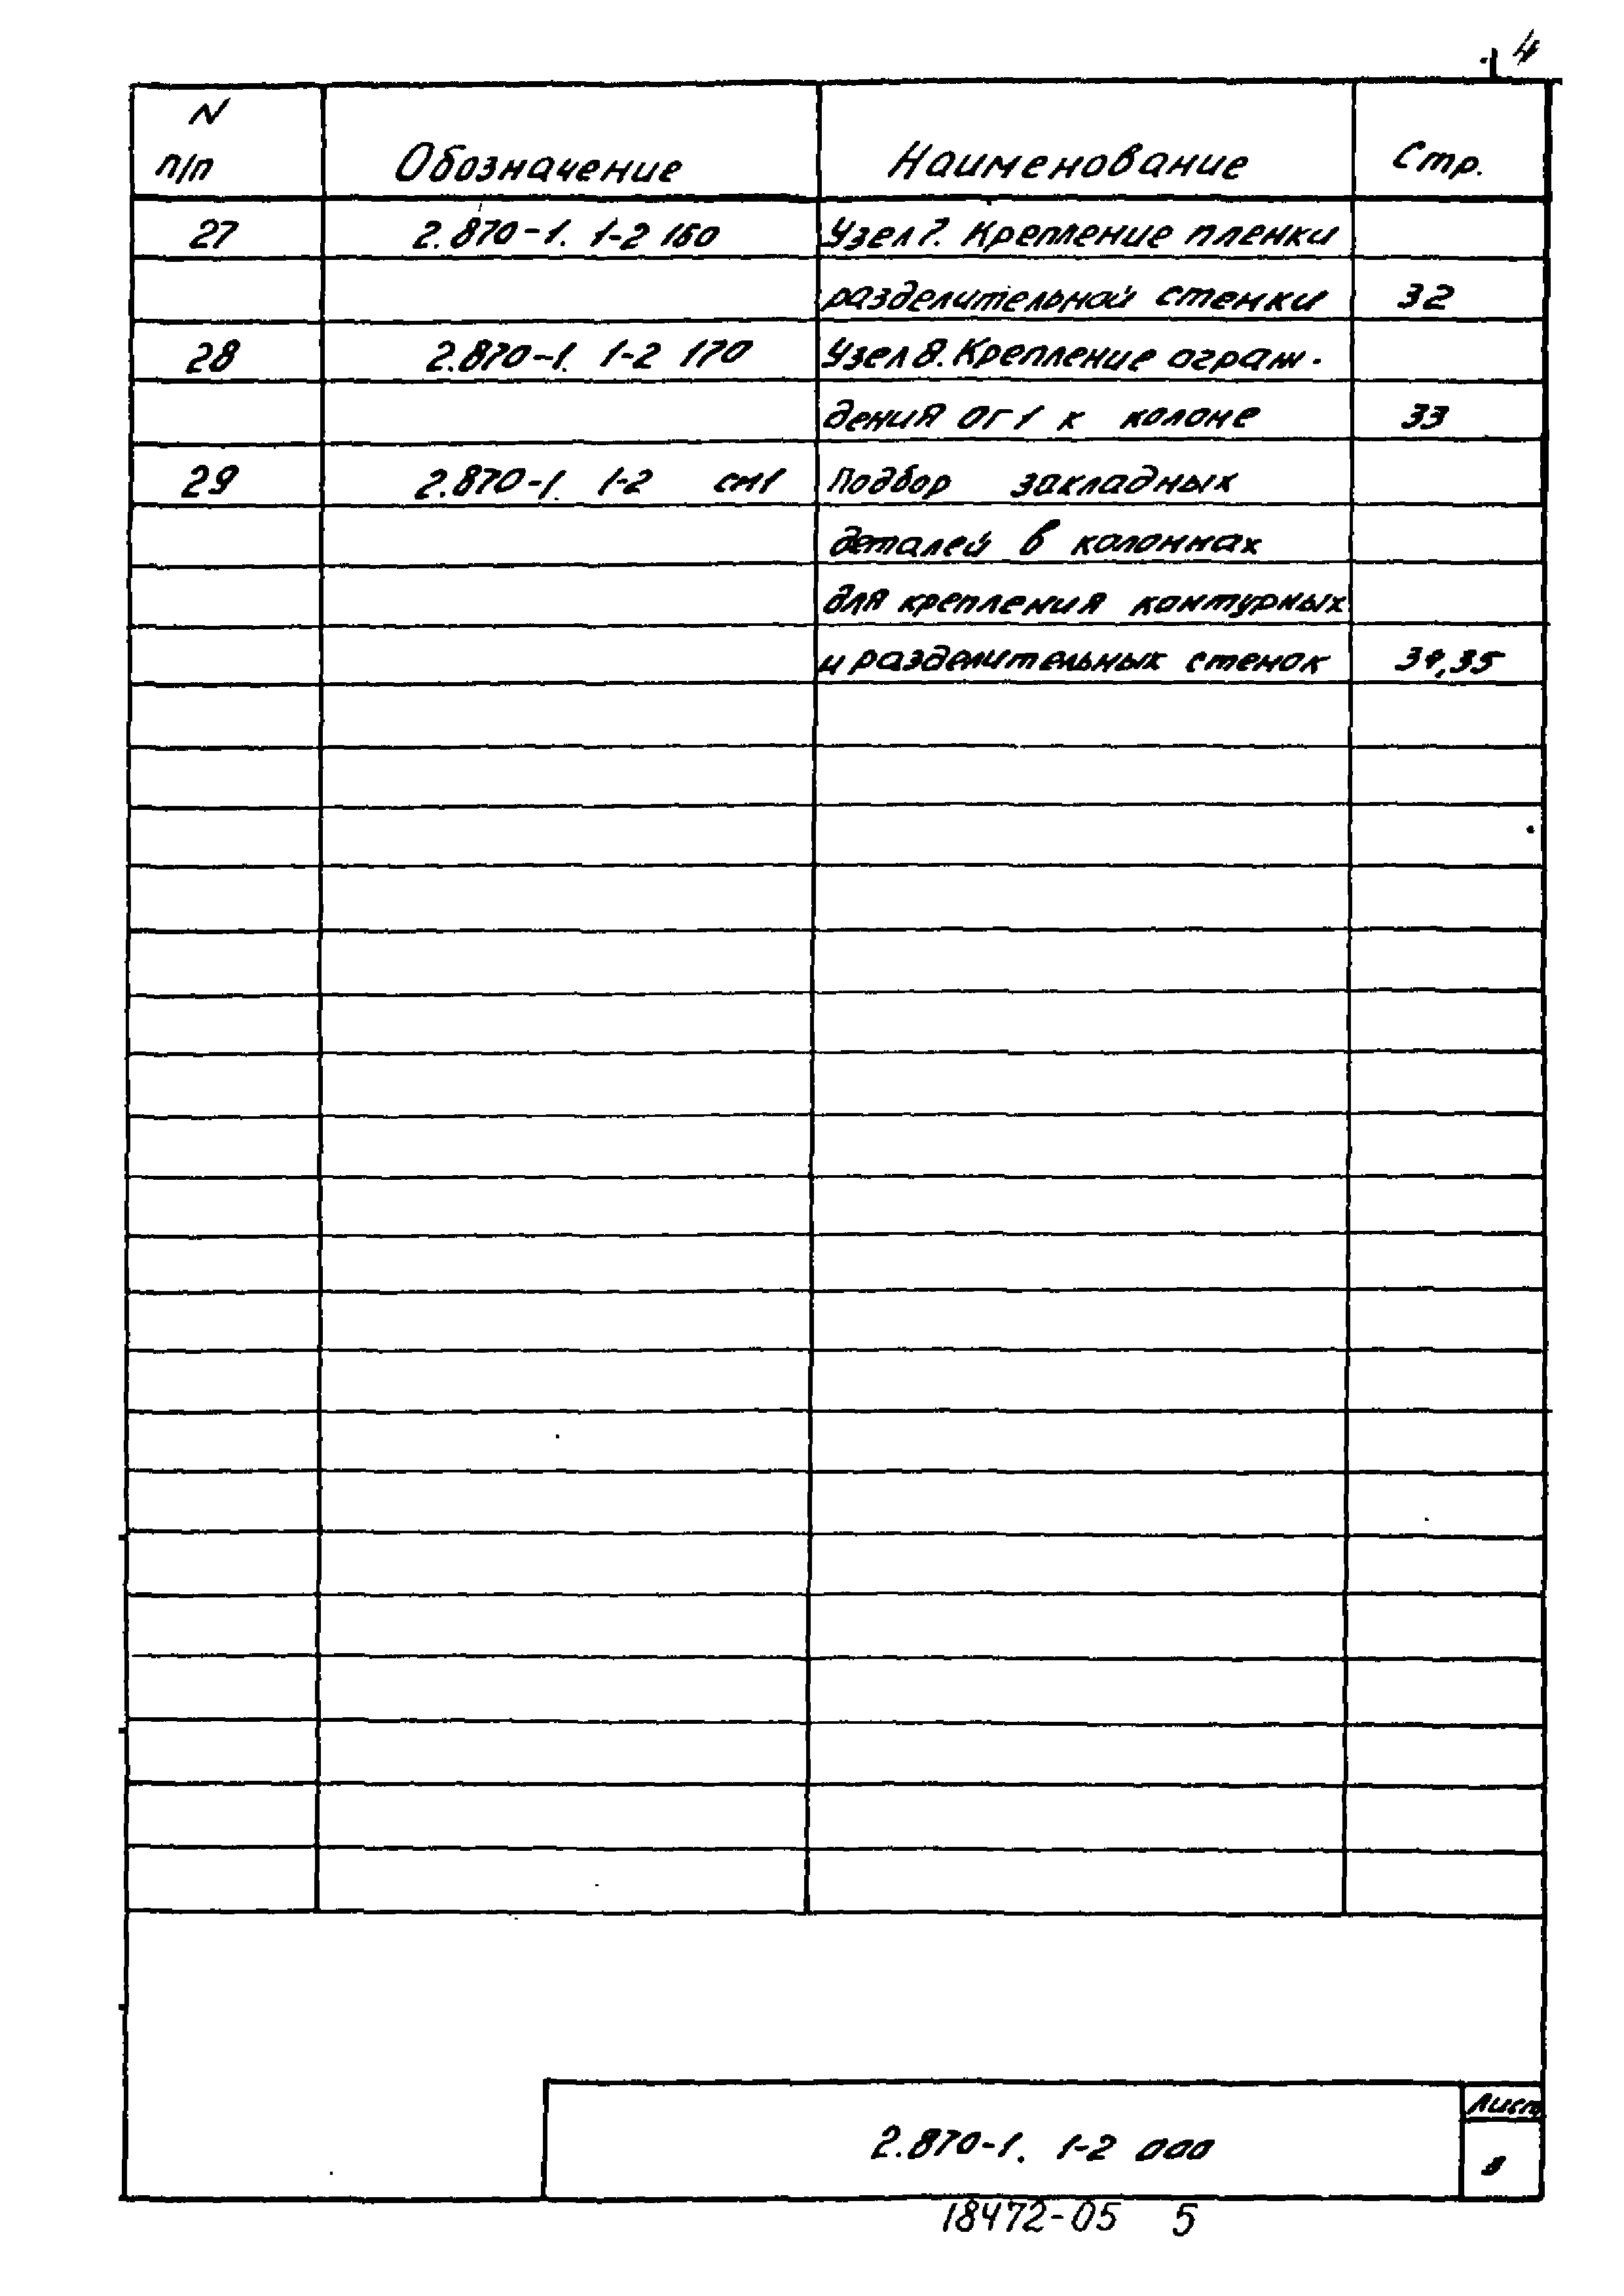 4
N
п/п Обозначение Наименование Стр.
27 2.870-1. 1-2 160 Узел 7. Крепление пленки
разделительной стенки 32
28 2.870-1. 1-2 170 Узел 8. Крепление ограж-
дения ОГ1 к колоне 33
29 2.870-1. 1-2 см1 Подбор закладных
деталей в колоннах
для крепления контурных
и разделительных стенок 34,35
2.870-1. 1-2 000
Лист
18472-05 5